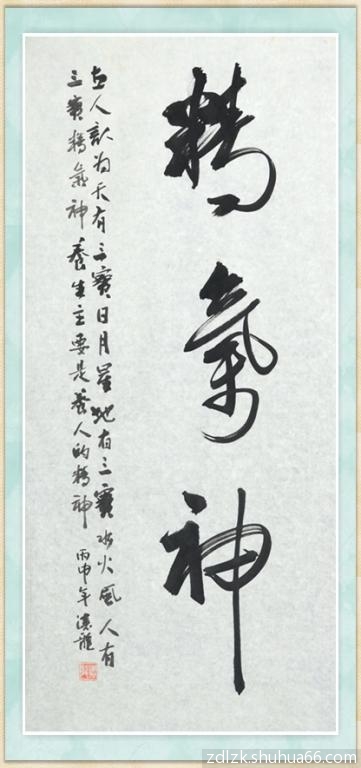 精氣神
古人認为天有三寶日月星地有三寶水火風人有
三寶精氣神養生主要是養人的精神 丙申年
zdlzk.shuhua66.com